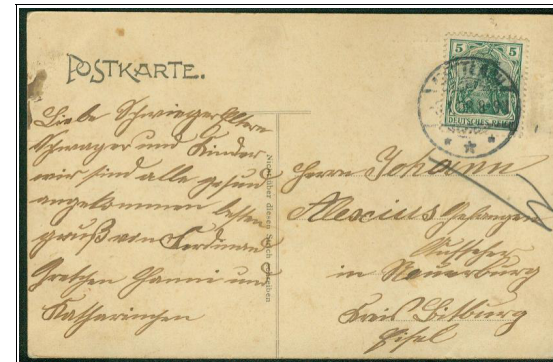 POSTKARTE.
5 5
DEUTSCHES REICH
Liebe Schwiegereltern
Schwager und Kinder
wir sind alle gesund
angekommen besten
gruß von Ferdinand
Gretchen Hanni und
Katharinchen
Nicht über diesen Strich schreiben
Herrn Johann
Alexius Gefangen
Aufseher
in Neuerburg
Kreis Bitburg
Eifel